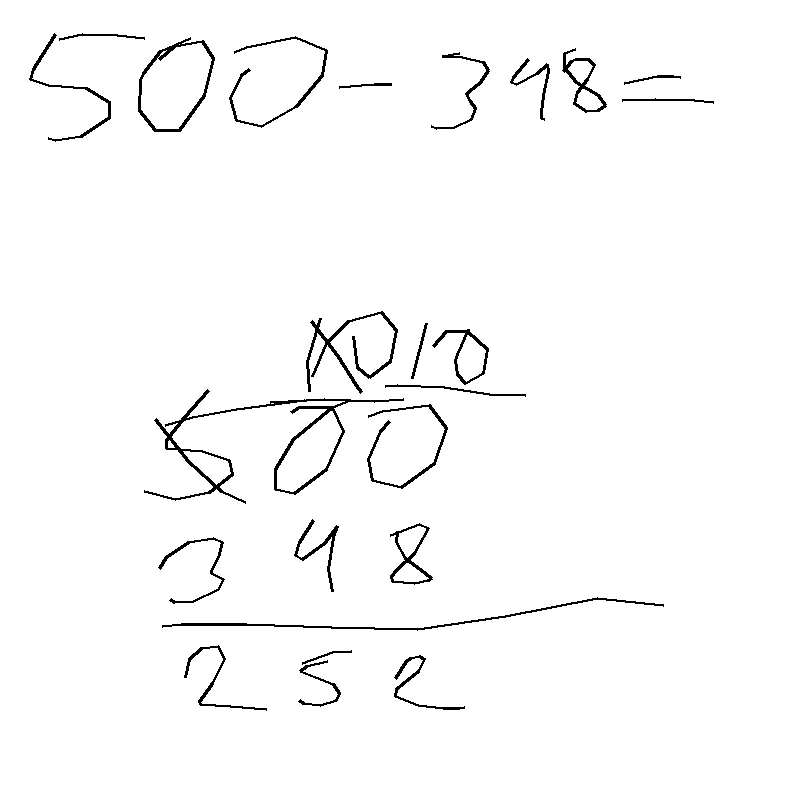 500 - 348 =
10 10
500
348
252